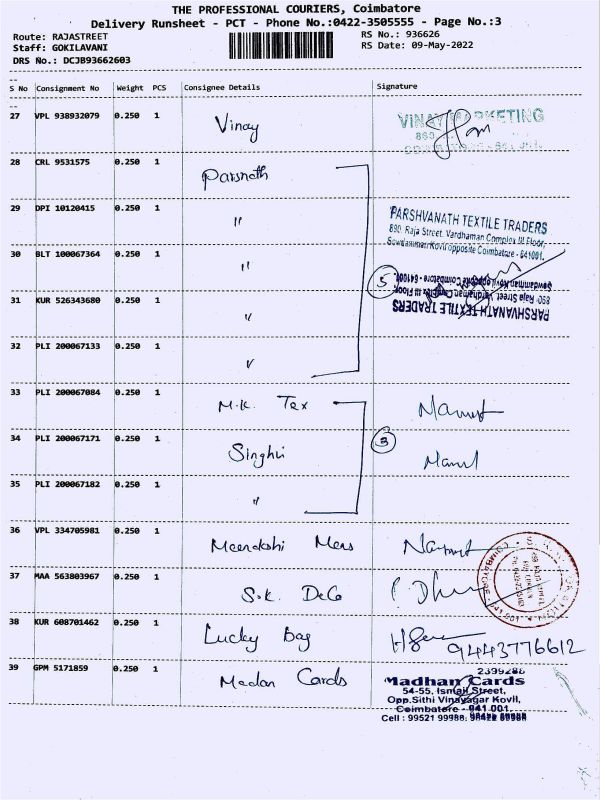 THE PROFESSIONAL COURIERS, Coimbatore
Delivery Runsheet - PCT - Phone No.:0422-3505555 - Page No.:3
Route: RAJASTREET
Staff: GOKILAVANI
DRS No.: DCJB93662603
RS No.: 936626
RS Date: 09-May-2022
S No Consignment No Weight PCS Consignee Details Signature
27 VPL 938932079 0.250 1 Vinay
VINAY MARKETING
28 CRL 9531575 0.250 1 Parsnath
29 DPI 10120415 0.250 1 "
PARSHVANATH TEXTILE TRADERS
890, Raja Street, Vardhaman Complex III Floor,
Sowdamman Kovil opposite Coimbatore - 641001.
30 BLT 100067364 0.250 1 "
5
Sowdamman Kovil opposite Coimbatore - 641001.
890, Raja Street, Vardhaman Complex III Floor,
PARSHVANATH TEXTILE TRADERS
31 KUR 526343680 0.250 1 "
32 PLI 200067133 0.250 1 "
33 PLI 200067084 0.250 1 M.K. Tex
34 PLI 200067171 0.250 1 Singhvi
3
35 PLI 200067182 0.250 1 "
36 VPL 334705981 0.250 1 Meenakshi Mens
37 MAA 563803967 0.250 1 S.K. DeCo
38 KUR 608701462 0.250 1 Lucky Bag
9443776612
39 GPM 5171859 0.250 1 Madan Cards
2399286
Madhan Cards
54-55, Ismail Street,
Opp.Sithi Vinayagar Kovil,
Coimbatore - 641 001.
Cell : 99521 99988, 98422 89988